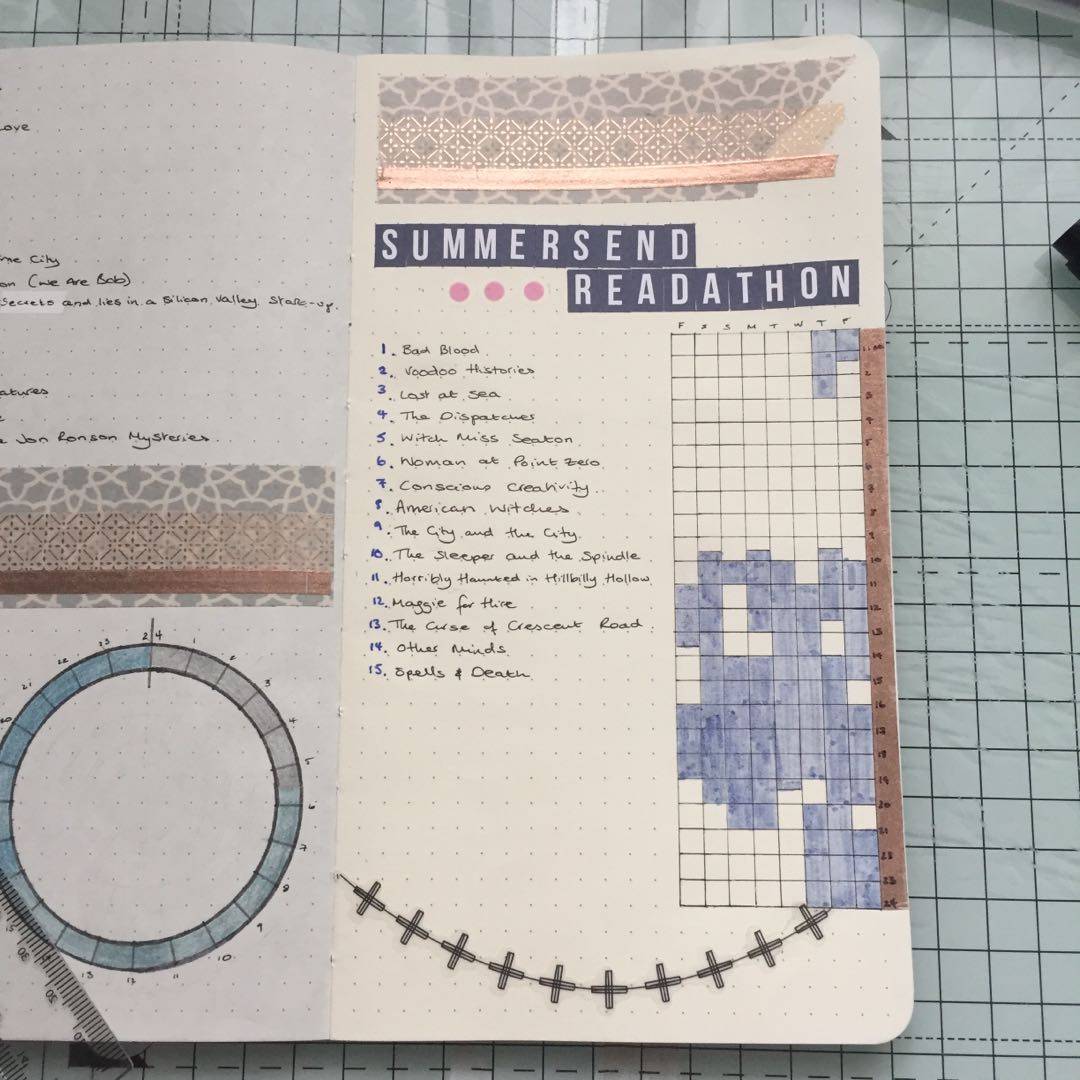 Love
City
(We Are Bob)
Secrets and lies in a Silicon Valley Start-up
Jon Ronson Mysteries.
23 24 1
22 2
21 3
4
7
8
9
10
11
SUMMERSEND
READATHON
F S S M T W T F
1. Bad Blood
2. Voodoo Histories
3. Lost at Sea
4. The Dispatcher
5. Witch Miss Seaton
6. Woman at Point Zero
7. Conscious Creativity
8. American Witches
9. The City and the City
10. The Sleeper and the Spindle
11. Horribly Haunted in Hillbilly Hollow
12. Maggie for Hire
13. The Curse of Crescent Road
14. Other Minds
15. Spells & Death
2
3
4
5
6
7
8
9
10
11
12
13
14
15
16
18
19
20
21
23
24